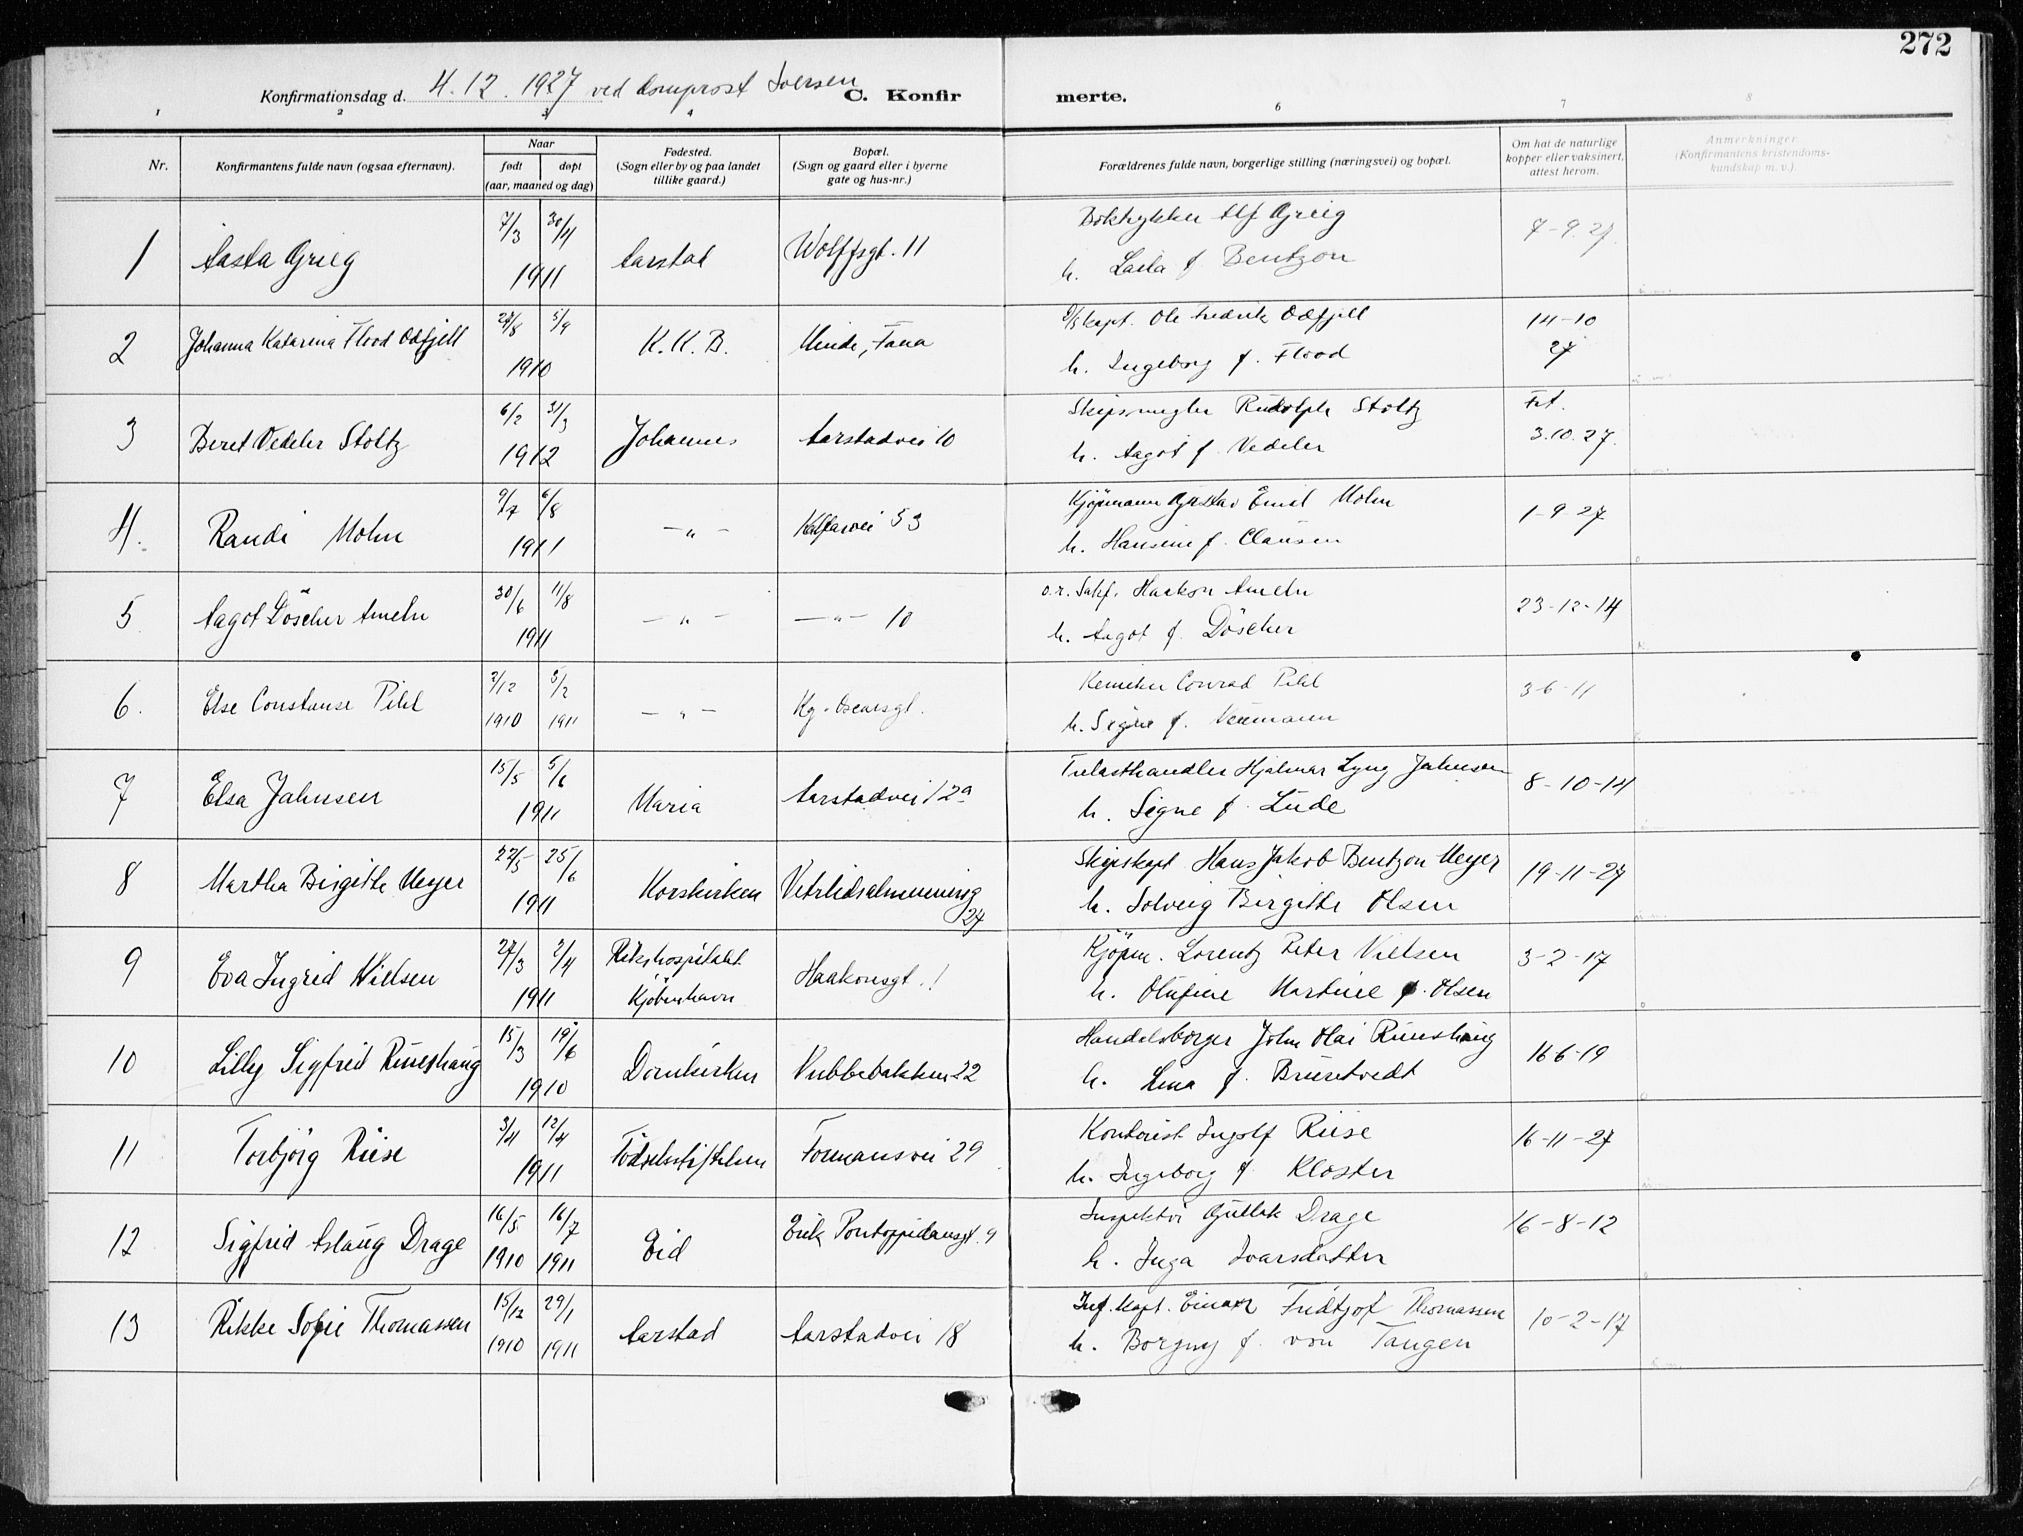 272
Konfirmationsdag d. 4.12.1927 ved domprost Iversen C. Konfir merte.
1 2 3 4 6 7 8
Nr. Konfirmantens fulde navn (ogsaa efternavn). Naar født døpt (aar, maaned og dag) Fødested. (Sogn eller by og paa landet tillike gaard.) Bopæl. (Sogn og gaard eller i byerne gate og hus-nr.) Forældrenes fulde navn, borgerlige stilling (næringsvei) og bopæl. Om hat de naturlige kopper eller vaksinert, attest herom. Anmerkninger. (Konfirmantens kristendoms-kundskap m. v.).
1 Aasta Grieg 7/3 30/4 1911 Aarstad Wolffsgt. 11 Boktrykker Alf Grieg 7-9.27.
h. Laila f. Bentzon
2 Johanna Katarina Flood Odfjell 29/8 5/9 1910 K.K.B. Minde, Fana D/Skapt. Ole Fredrik Odfjell 14-10 27
h. Ingeborg f. Flood
3 Beret Vedeler Stoltz 6/2 31/3 1912 Johannes Aarstadvei 10 Skipsmegler Rudolph Stoltz Fat. 3.10.27.
h. Aagot f. Vedeler
4. Randi Mohn 9/7 6/8 1911 -„- Kalfarvei 53 Kjøpmann Gustav Emil Mohn 1-9-27
h. Hansine f. Clausen
5 Aagot Döscher Ameln 30/6 11/8 1911 -„- -„- 10 o.r. Sakf. Haakon Ameln 23-12-14
h. Aagot f. Döscher
6. Else Constanse Pihl 2/12 1910 5/2 1911 -„- Kg. Oscarsgt. Kemiker Conrad Pihl 3-6-11
h. Signe f. Neumann
7 Elsa Jahnsen 15/5 5/6 1911 Maria Aarstadvei 12a Trelasthandler Hjalmar Lyng Jahnsen 8-10-14
h. Signe f. Lude
8 Martha Birgithe Meyer 22/5 25/6 1911 Korskirken Vetrlidsalmenning 24 Skipskapt. Hans Jakob Bentzon Meyer 19-11-27
h. Solveig Birgitte Olsen
9 Eva Ingrid Nielsen 27/3 2/4 1911 Rikshospitalet Kjöbenhavn Haakonsgt. 1 Kjöpm. Lorentz Peter Nielsen 3-2-17
h. Olufine Martine f. Olsen
10 Lilly Sigfrid Runshaug 15/3 19/6 1910 Domkirken Nubbebakken 22 Handelsborger John Olai Runshaug 16 6-19
h. Lina f. Bruntvedt
11 Torbjörg Riise 3/4 12/4 1911 Födselsstiftelsen Formansvei 29 Kontorist Ingolf Riise 16-11-27
h. Ingeborg f. Kloster
12 Sigfrid Aslaug Drage 16/5 1910 16/7 1911 Eid Erik Pontoppidansgt. 9 Inspektör Gullek Drage 16-8-12
h. Inga Ivarsdatter
13 Rikke Sofie Thomassen 15/12 1910 29/1 1911 Aarstad Aarstadvei 18 Inf. kapt. Einar Fridtjof Thomassen 10-2-17
h. Borgny f. von Tangen